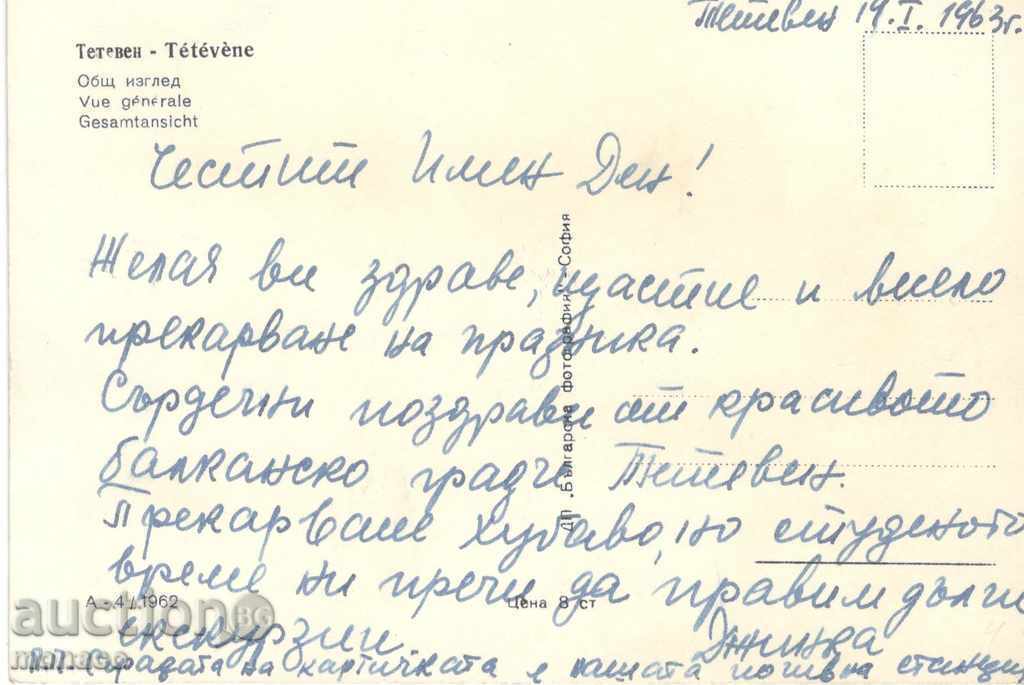 Тетевен 19.I.1963г.
Тетевен - Tétévène
Общ изглед
Vue générale
Gesamtansicht
Честит Имен Ден!
Желая ви здраве, щастие и весело
прекарване на празника.
Сърдечни поздрави от красивото
балканско градче Тетевен.
Прекарваме хубаво, но студеното
време ни пречи да правим дълги
екскурзии
Сградата на картичката е нашата почивна станция
ДП „Българска фотография" - София
А - 4/1962
Цена 8 ст
auction.BG
manago